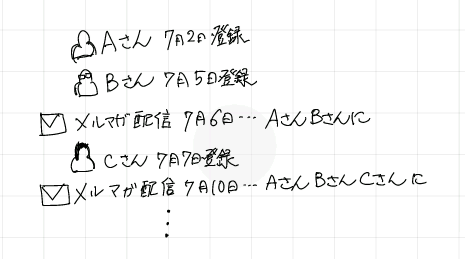 Aさん 7月2日登録
Bさん 7月5日登録
メルマガ配信 7月6日… AさんBさんに
Cさん 7月7日登録
メルマガ配信 7月10日… AさんBさんCさんに
⋮